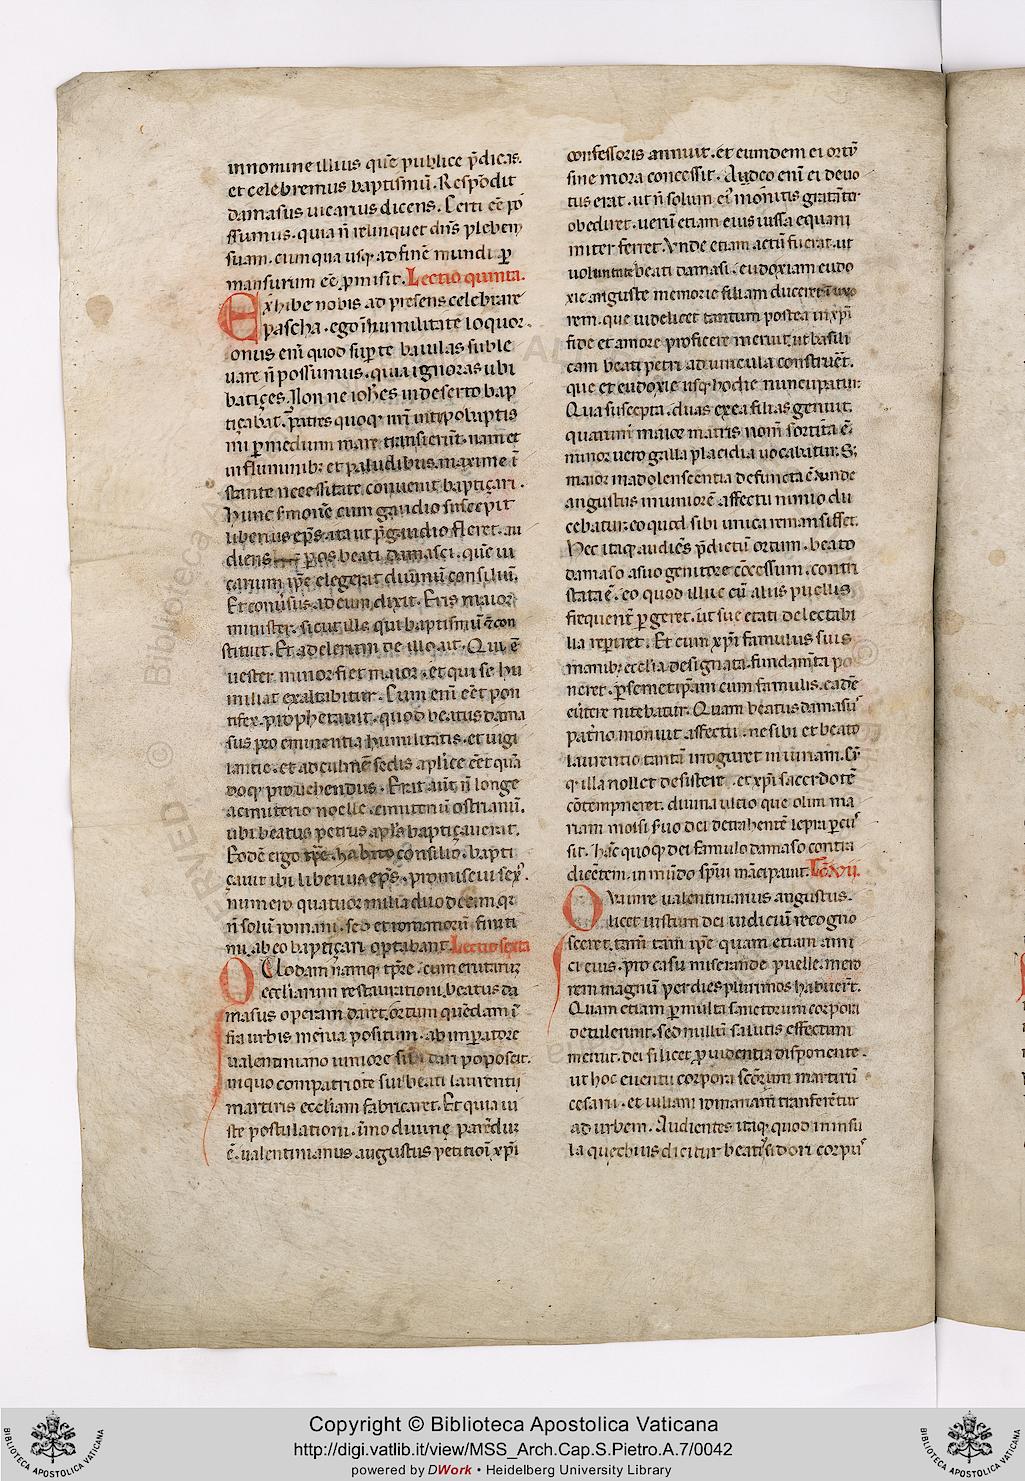 in nomine illius quẽ publice p̃dicas.
et celebremus baptismũ. Respõdit
damasus uicarius dicens. Certi eẽ pos
sumus. quia ñ relinquet dñs plebem
suam. cum qua usq; ad finẽ mundi ꝑ
mansurum eẽ ꝓmisit. Lectio quinta.
Exhibe nobis ad presens celebrare
pascha. ego ĩ humilitate loquor.
onus eni quod suꝑ te baiulas suble
uare ñ possumus. quia ignoras ubi
batiçes. Non ne ioh̃es in deserto bap
tiçabat. p̃atres quoq;
mi ꝑ medium mare transierũt. nam et
in fluminib; et paludibus. maxime ĩ
stante necessitate conuenit baptiçari.
Hunc s̃monẽ cum gaudio suscepit
liberius ep̃s. ita ut p̃ gaudio fleret. au
diens beati damasci. quẽ ui
carium ip̃e elegerat diuinũ consiliũ.
Et conũsus ad eum dixit. Eris maior
minister. sicut ille qui baptismũ con
stituit. Et adelenim de illo ait. Qui ẽ
uester minor fiet maior. et qui se hu
miliat exaltabitur. Cum enĩ eẽt pon
tifex. prophetauit. quod beatus dama
sus pro eminentia humilitatis. et uigi
lantie. et ad culmẽ sedis aplice eẽt quã
doq; prouehendus. Erat aũt ñ longe
a cimiterio noelle. cimiteriũ ostrianũ.
ubi beatus petrus apl̃s baptiçauerat.
Eodẽ ergo habito consilio. bapti
çauit ibi liberius ep̃s. promiscui sex᷒.
numero quatuor milia duodecim. q;
ñ solũ romani. sed et romanorũ finiti
mi. ab eo baptiçari optabant. Lectio sexta
Quodam namq; tp̃re. cum crutarũ
eccliarum restaurationi. beatus da
masus operam daret. ortum quẽdam ĩ
fra urbis menia positum. ab imꝑatore
ualentiniano iuniore sibi dari poposcit.
in quo compatriote sui beati laurentii
martiris eccliam fabricaret. Et quia iu
ste postulationi. diuine
ẽ. ualentinianus augustus petitioĩ xp̃i
confessoris annuit. et eumdem ei ortũ
sine mora concessit. Adeo enĩ ei deuo
tus erat. ut ñ solum ei᷒ monitis gratãter
obediret. uerũ etiam eius iussa equani
miter ferret. Vnde etiam actũ fuerat. ut
uoluntate beati damasi. eudoxiam eudo
xie auguste memorie filiam duceret ĩ uxo
rem. que uidelicet tantum postea in xp̃i
fide et amore proficere meruit. ut basili
cam beati petri ad uincula construẽt.
que et eudoxie usq; hodie nuncupatur.
Qua suscepta. duas ex ea filias genuit.
quarum maior matris nom̃ sortita ẽ.
minor uero galla placidia uocabatur. S;
maior in adolenscentia defuncta ẽ. unde
augustus in iuniorẽ affectu nimio du
cebatur. eo quod sibi unica remansisset.
Hec itaq; audiẽs p̃dictũ ortum. beato
damaso a suo genitore cõcessum. contri
stata ẽ. eo quod illuc cũ aliis puellis
frequent̃ ꝑgeret. ut sue etati delectabi
lia reꝑiret. Et cum xp̃i famulus suis
manib; ecclia designata. fundam̃ta po
neret. ꝑ semetip̃am cum famulis. eadẽ
eũtere nitebatur. Quam beatus damasus
paterno monuit affectu. ne sibi et beato
laurentio tantã irrogaret iniuriam.
q; illa nollet desistere. et xp̃i sacerdotẽ
cõtempneret. diuina ultio que olim ma
riam moisi suo dei detrahentẽ lepra ꝑcus
sit. hãc quoq; dei famulo damaso contra
dicẽtem. in mũdo sp̃iui mãcipauit. Lc̃. vii.
Quamre ualentinianus augustus.
licet iustum dei iudiciũ recogno
sceret. tam̃ tam ip̃e quam etiam ami
ci eius. pro casu miserande puelle. mero
rem magnũ per dies plurimos habuer̃t.
Quam etiam ꝑ multa sanctorum corpora
detulerunt. sed nullũ salutis effectum
meruit. dei silicet ꝓuidentia disponente.
ut hoc euentu corpora scõrum martirũ
cesarii. et iuliani romanam tranferẽtur
ad urbem. Audientes itaq; quod in insu
la que chius dicitur beati isidori corpus
Copyright © Biblioteca Apostolica Vaticana
http://digi.vatlib.it/view/MSS_Arch.Cap.S.Pietro.A.7/0042
powered by DWork • Heidelberg University Library
BIBLIOTECA APOSTOLICA VATICANA
BIBLIOTECA APOSTOLICA VATICANA